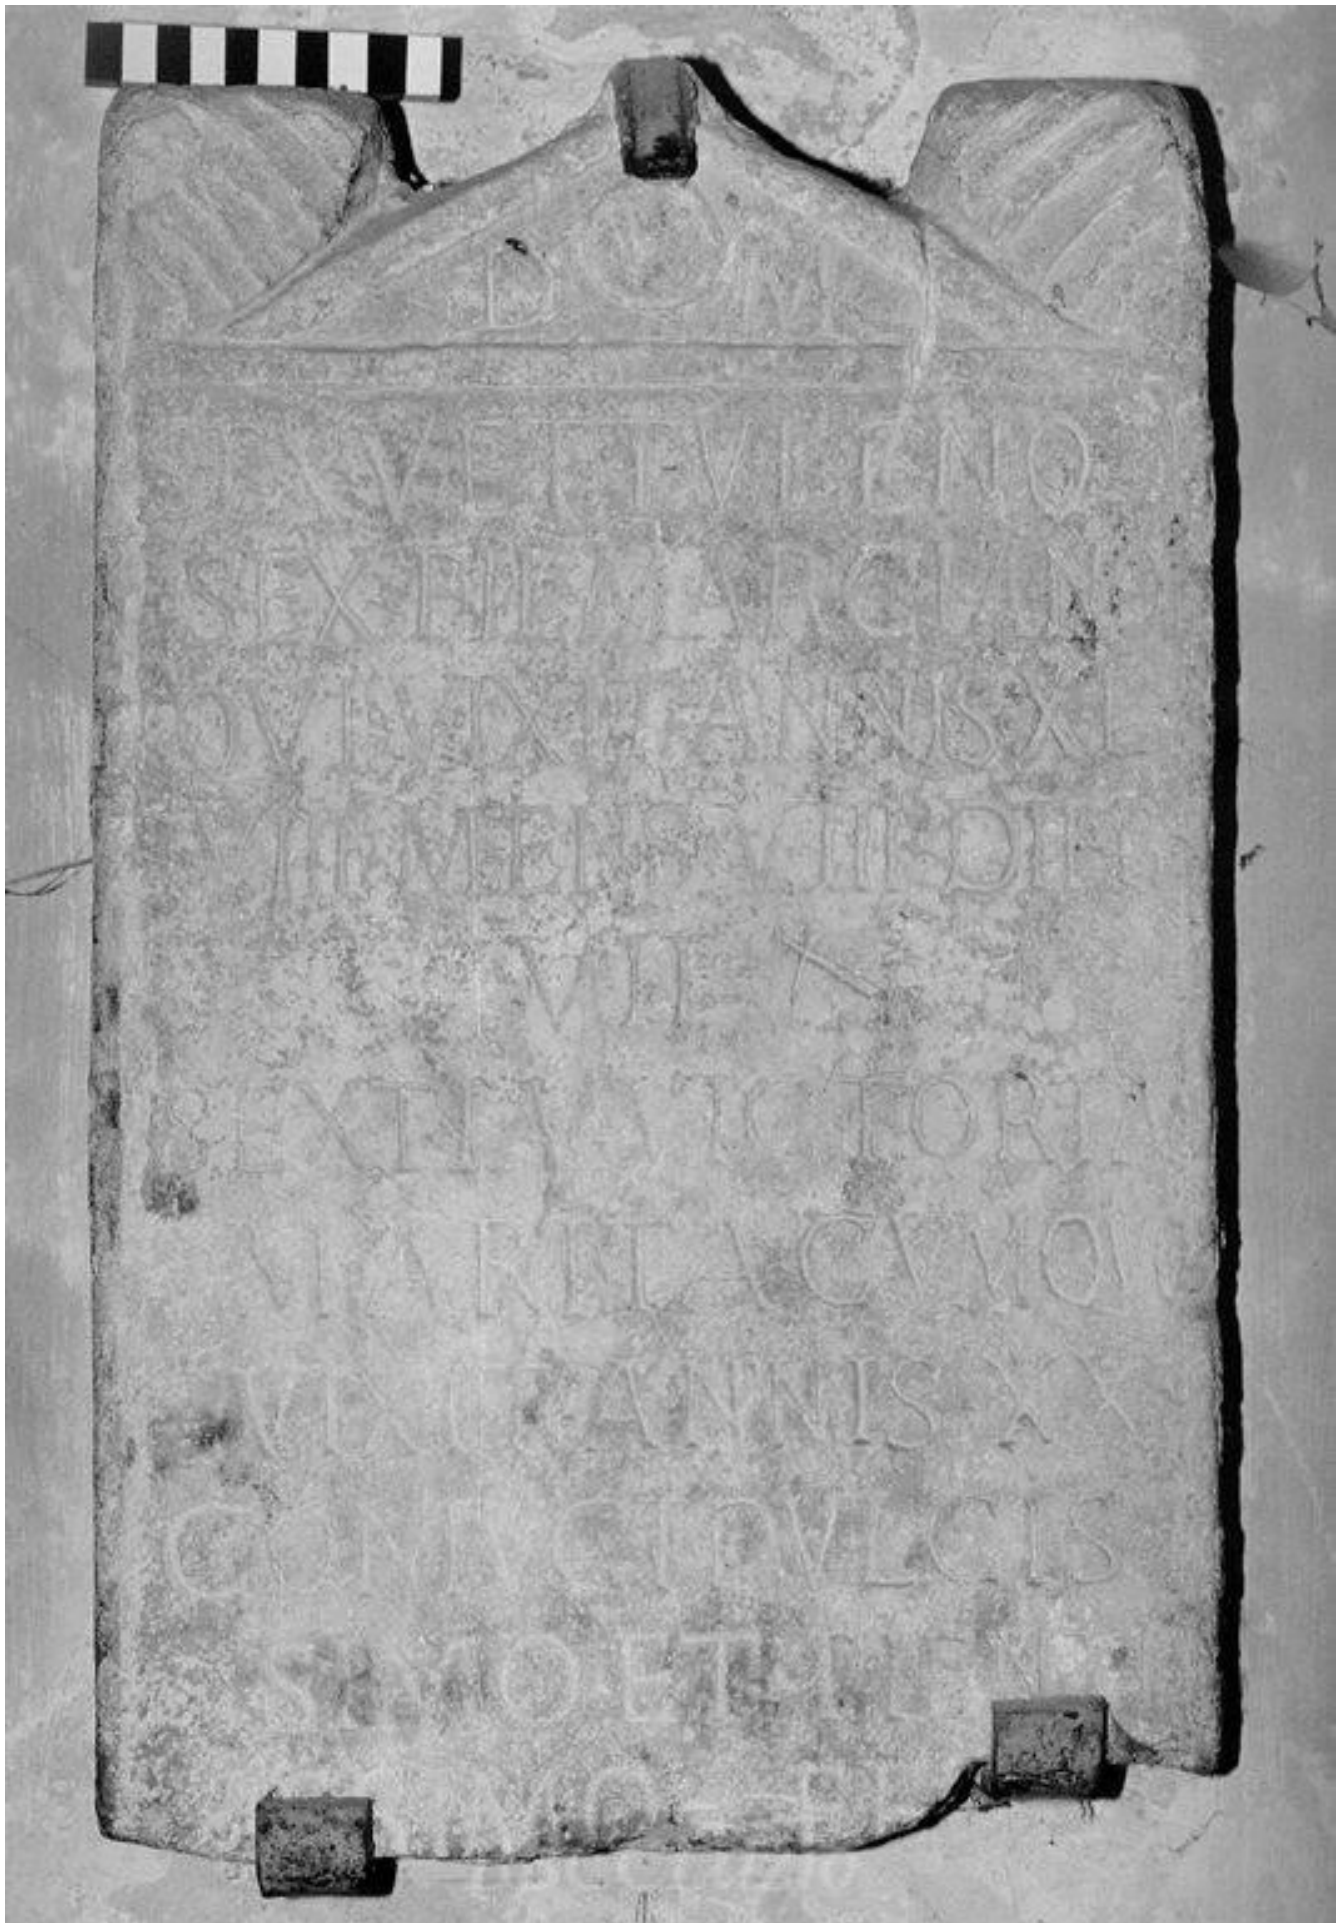 D M
SEX VETTVLENO
SEX FIL MARCELLIN
QVI VIXIT ANNIS XL
VII MENS VIIII DIE
VII
SEXTIVA FORTV
MARIT A CVM QV
VIXIT ANNIS XX
CONIVGI DVLCIS
SIMO ET